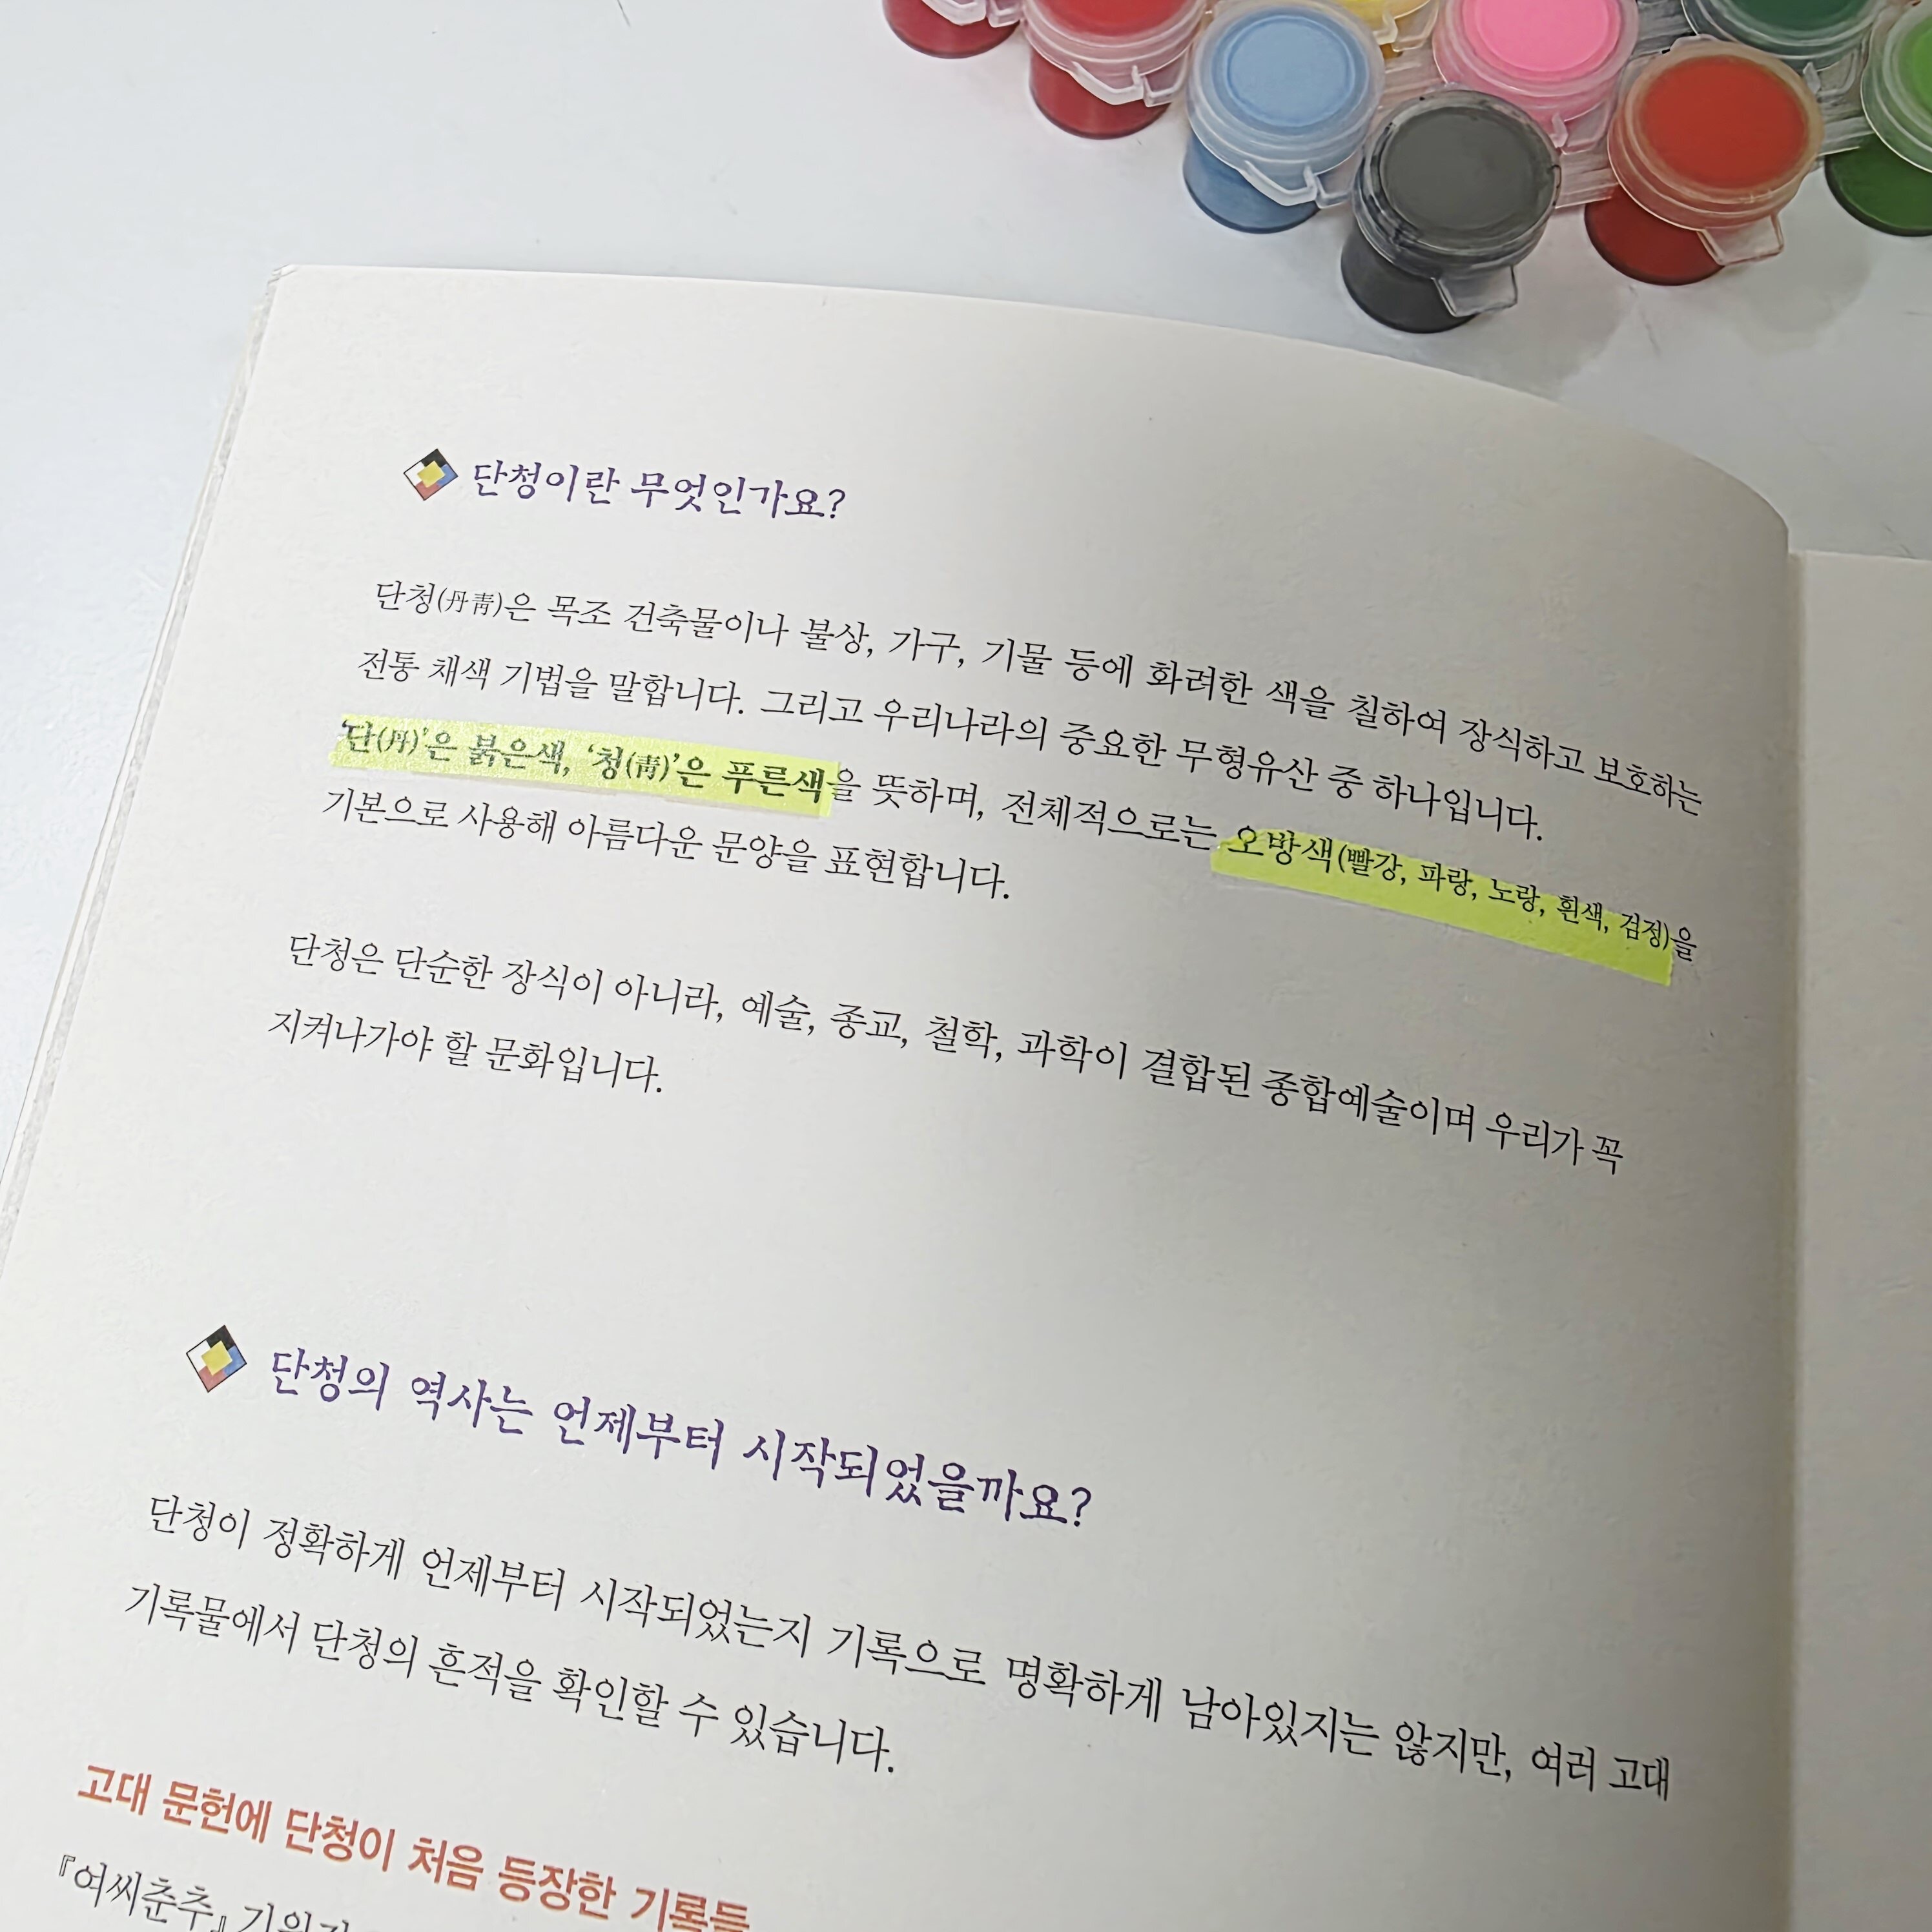 단청이란 무엇인가요?
단청(丹靑)은 목조 건축물이나 불상, 가구, 기물 등에 화려한 색을 칠하여 장식하고 보호하는
전통 채색 기법을 말합니다. 그리고 우리나라의 중요한 무형유산 중 하나입니다.
‘단(丹)’은 붉은색, ‘청(靑)’은 푸른색을 뜻하며, 전체적으로는 오방색(빨강, 파랑, 노랑, 흰색, 검정)을
기본으로 사용해 아름다운 문양을 표현합니다.
단청은 단순한 장식이 아니라, 예술, 종교, 철학, 과학이 결합된 종합예술이며 우리가 꼭
지켜나가야 할 문화입니다.
단청의 역사는 언제부터 시작되었을까요?
단청이 정확하게 언제부터 시작되었는지 기록으로 명확하게 남아있지는 않지만, 여러 고대
기록물에서 단청의 흔적을 확인할 수 있습니다.
고대 문헌에 단청이 처음 등장한 기록들
『여씨춘추』